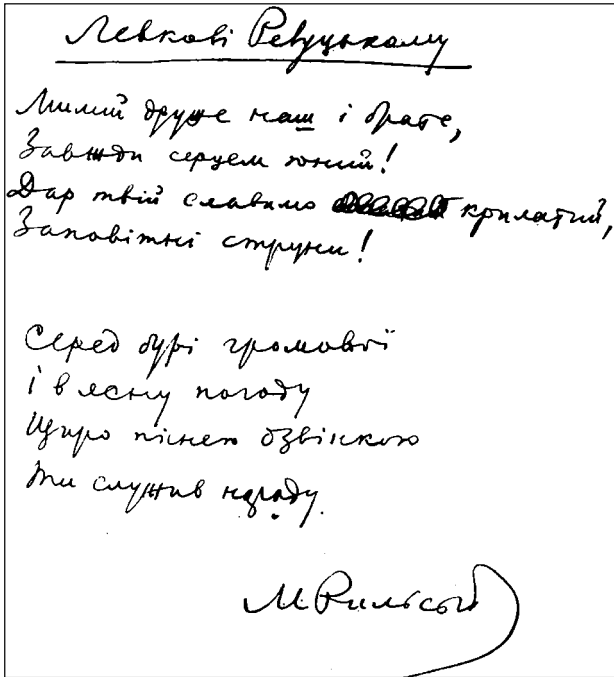 Левкові Ревуцькому
Милий друже наш і брате,
Завжди серцем юний!
Дар твій славимо крилатий,
Заповітні струни!
Серед бурі громової
І в ясну погоду
Щиро піснею дзвінкою
Ти служив народу.
М Рильський